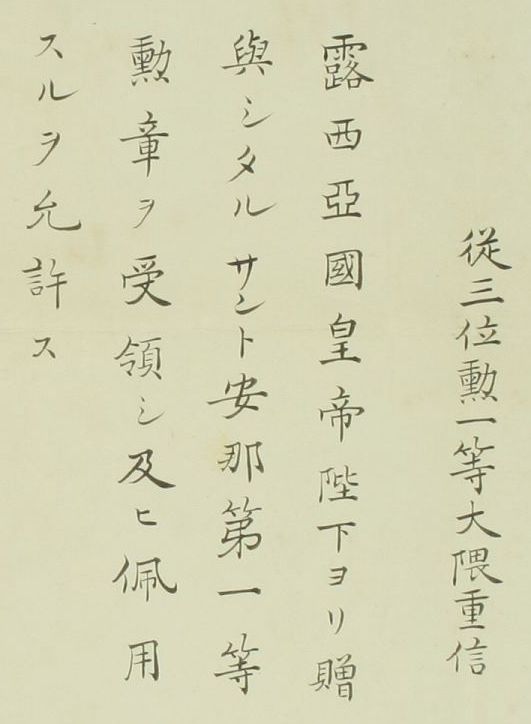 從三位勲一等大隈重信
露西亞國皇帝陛下ヨリ贈
與シタルサント安那第一等
勲章ヲ受領シ及ヒ佩用
スルヲ允許ス